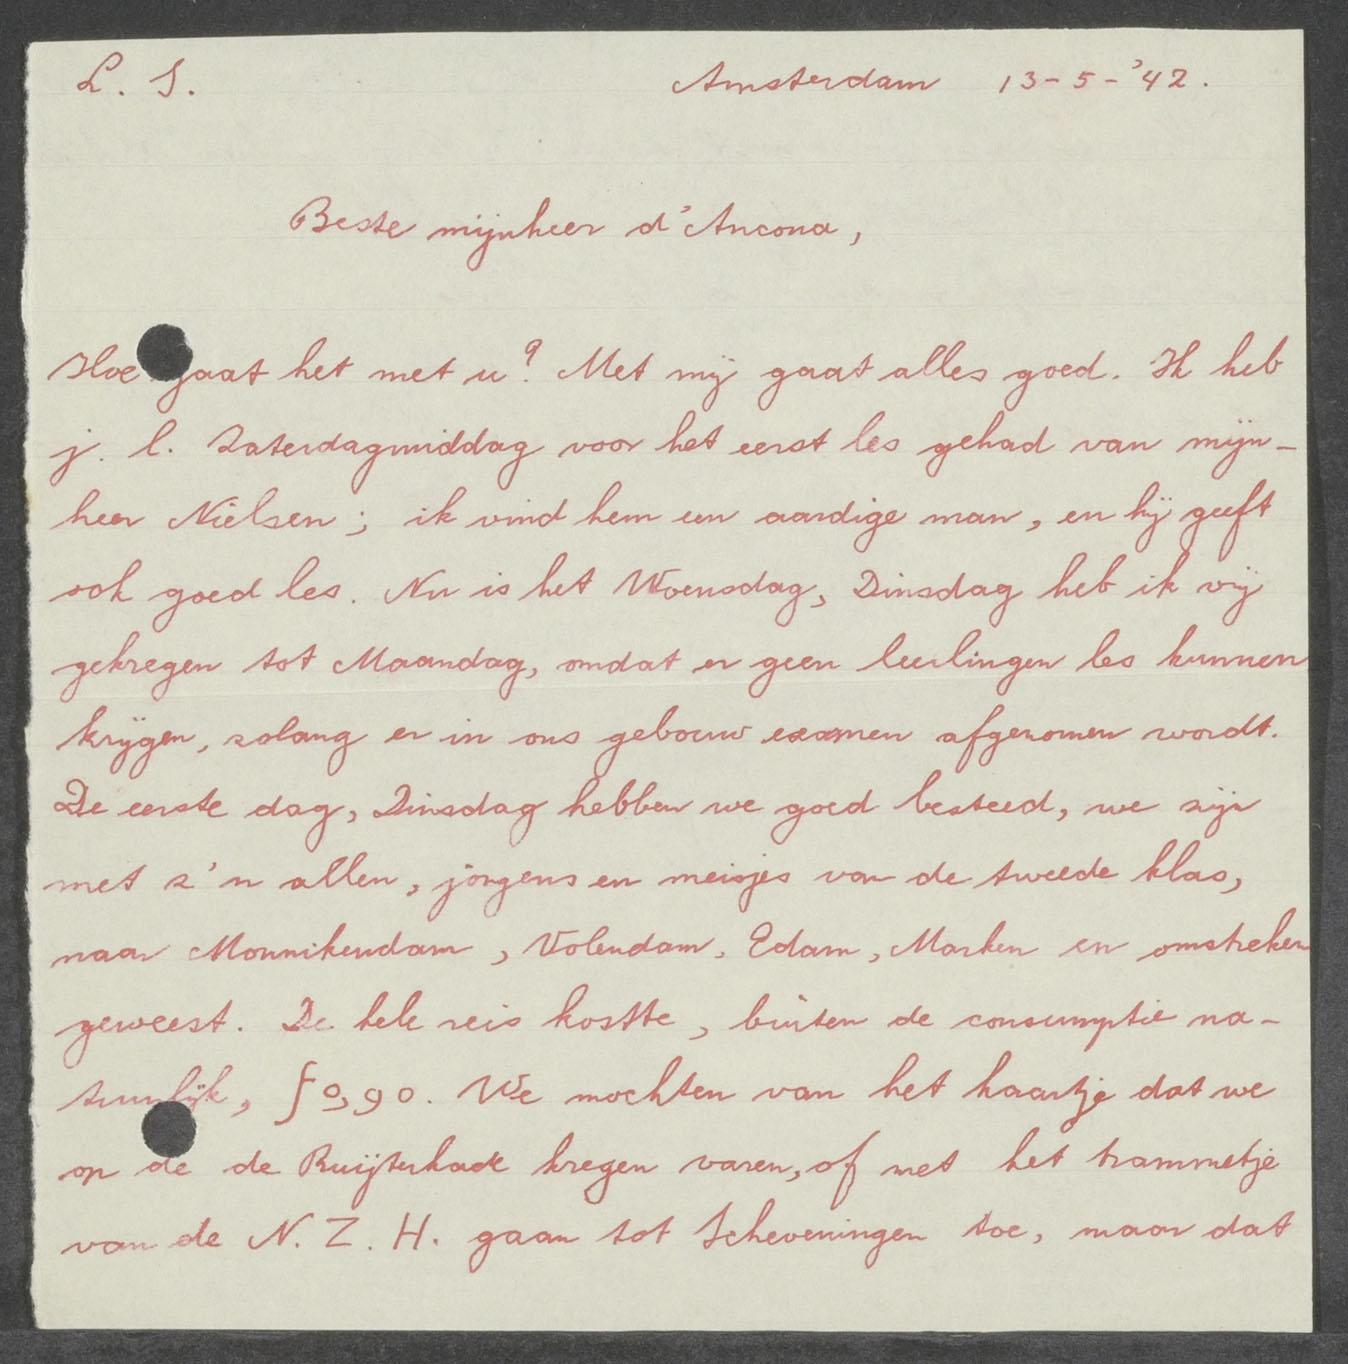 L. S. Amsterdam 13-5-'42.
Beste mijnheer d'Ancona,
Hoe gaat het met u? Met mij gaat alles goed. Ik heb
j. l. Zaterdagmiddag voor het eerst les gehad van mijn-
heer Nielsen; ik vind hem een aardige man, en hij geeft
ook goed les. Nu is het Woensdag, Dinsdag heb ik vrij
gekregen tot Maandag, omdat er geen leerlingen les kunnen
krijgen, zolang er in ons gebouw examen afgenomen wordt.
De eerste dag, Dinsdag hebben we goed besteed, we zijn
met z'n allen, jongens en meisjes van de tweede klas,
naar Monnikendam, Volendam, Edam, Marken en omstreken
geweest. De hele reis kostte, buiten de consumptie na-
tuurlijk, f 0,90. We mochten van het kaartje dat we
op de de Ruijterkade kregen varen, of met het trammetje
van de N. Z. H. gaan tot Scheveningen toe, maar dat